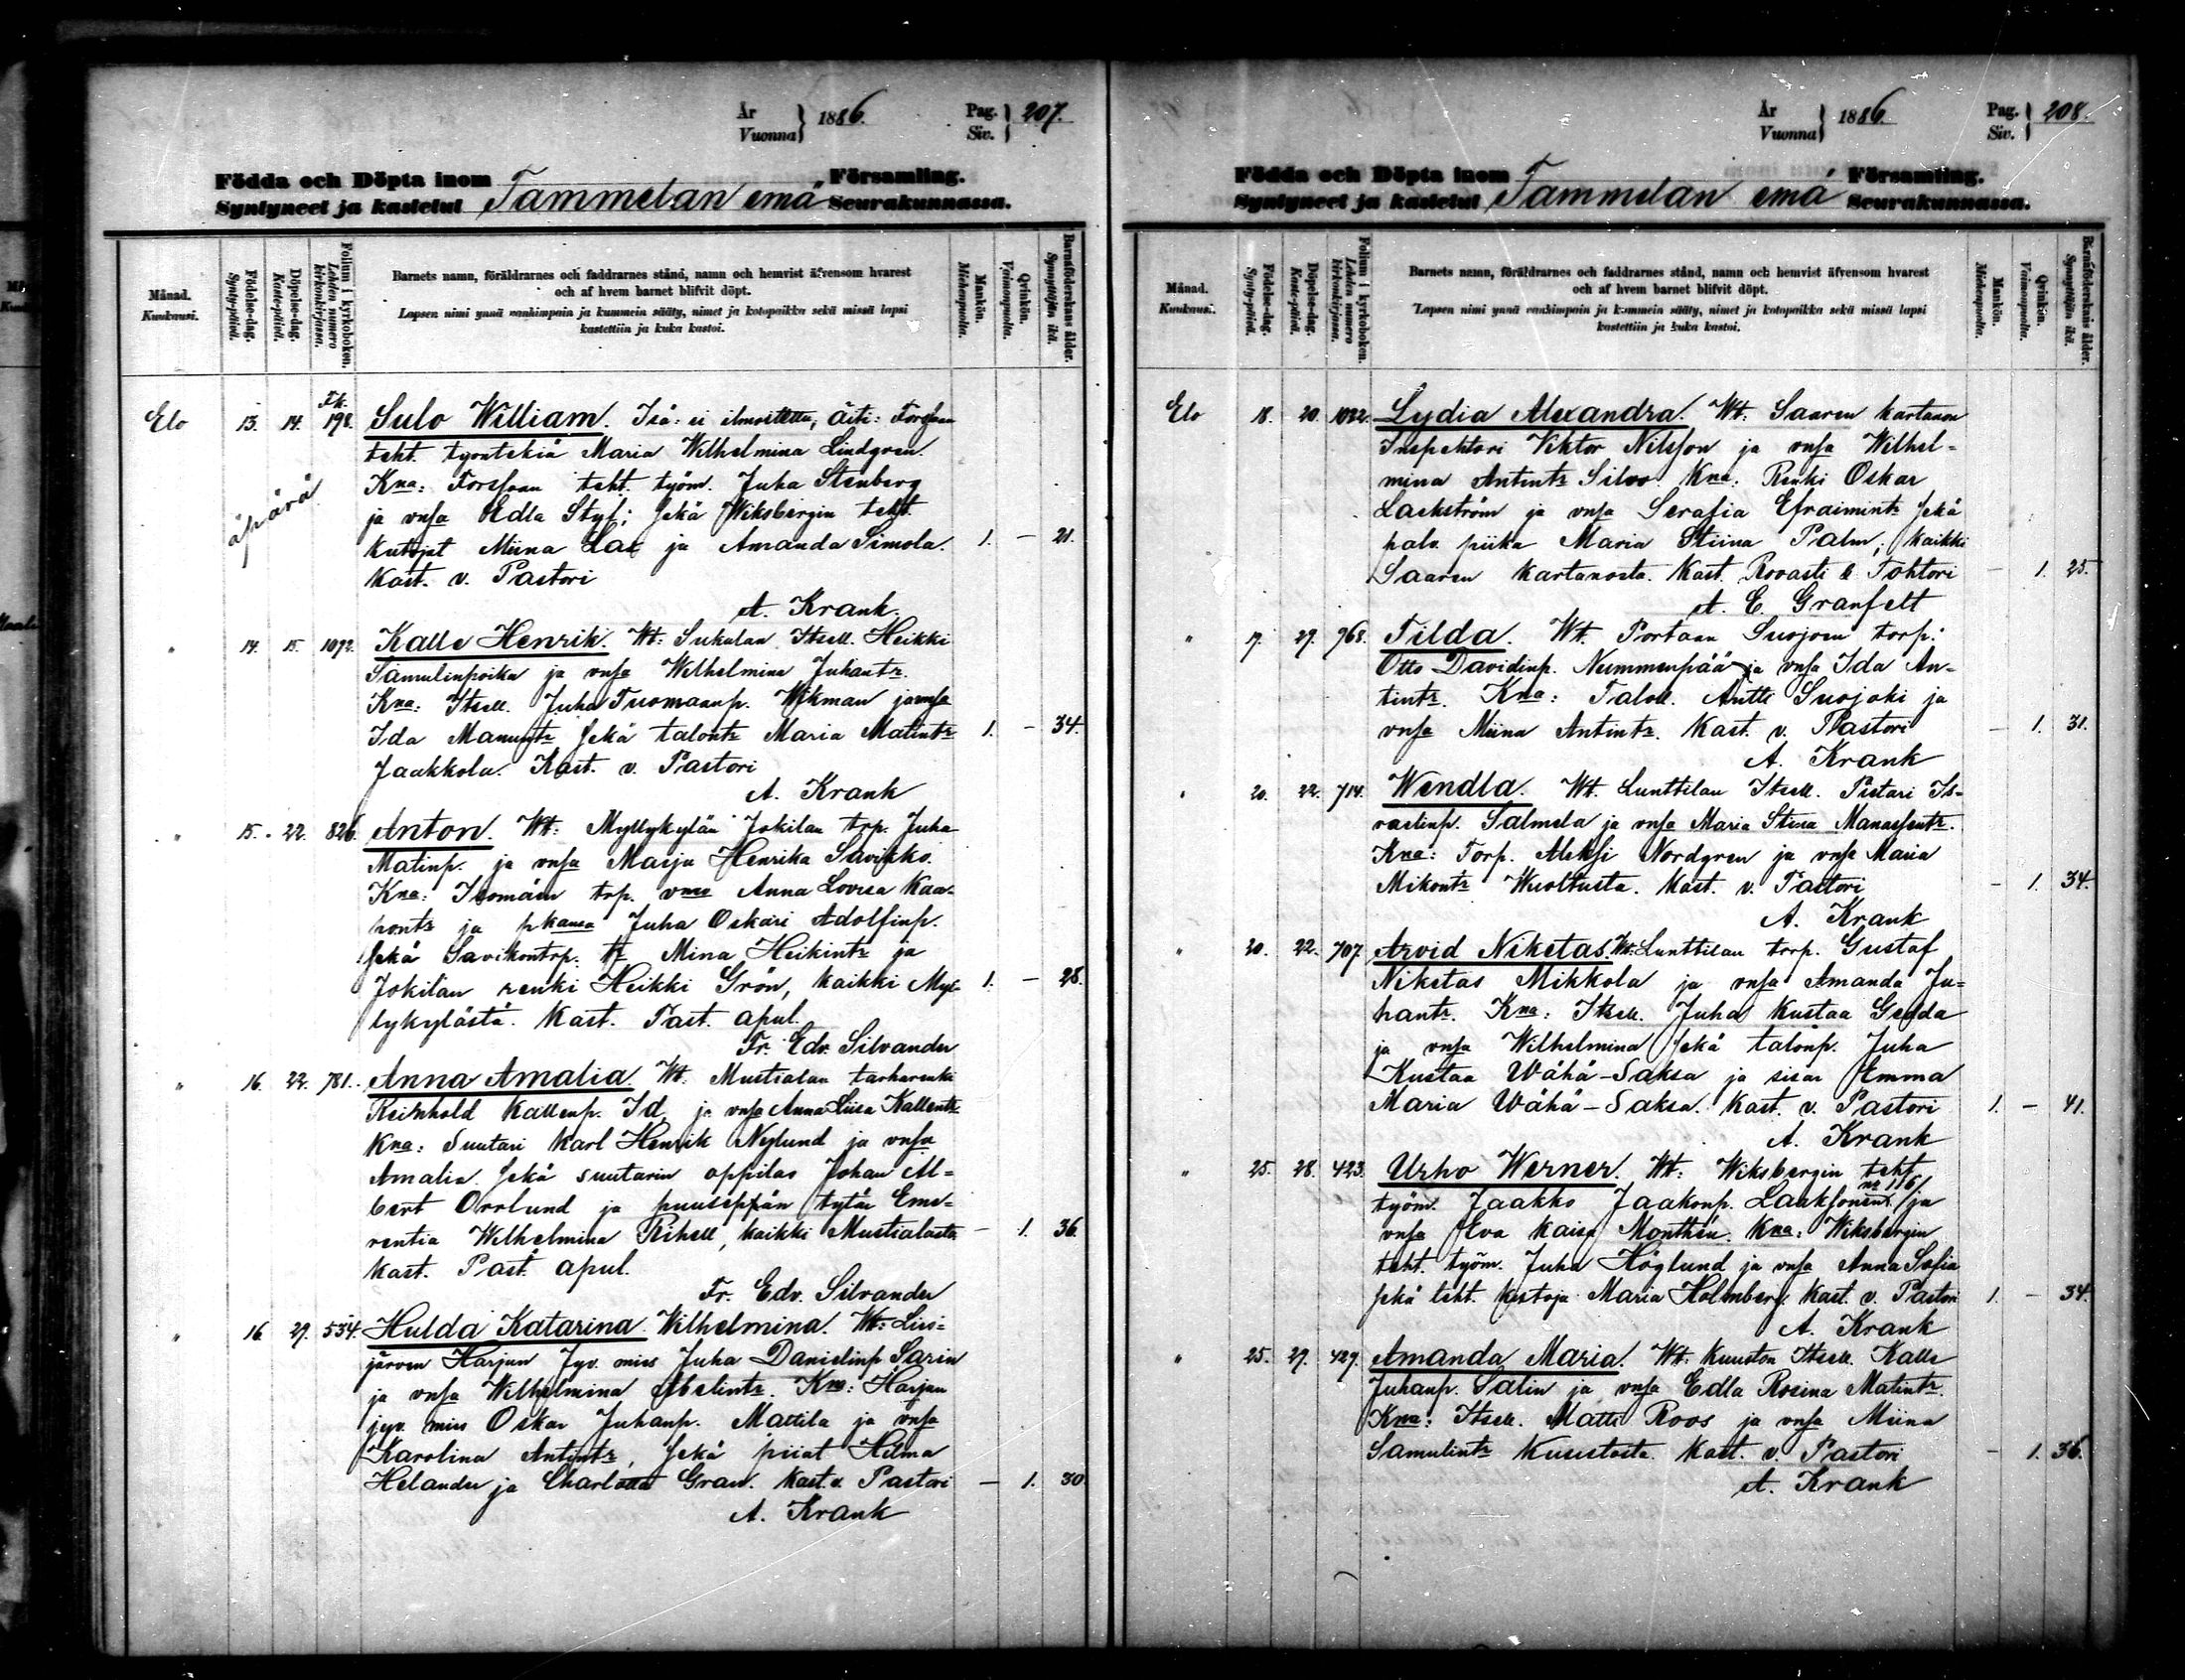 År
Vuonna } 1886.
Pag.
Siv. } 207.
Födda och Döpta inom Tammelan emä Församling.
Syntyneet ja kastetut Seurakunnassa.
Månad.
Kuukausi.
Födelse-dag.
Synty-päivä.
Döpelse-dag.
Kaste-päivä.
Folium i kyrkoboken.
Lehden numero kirkonkirjassa.
Barnets namn, föräldrarnes och faddrarnes stånd, namn och hemvist äfvensom hvarest
och af hvem barnet blifvit döpt.
Lapsen nimi ynnä vanhimpain ja kummein sääty, nimet ja kotopaikka sekä missä lapsi
kastettiin ja kuka kastoi.
Mankön.
Miehenpuolta.
Qvinkön.
Vaimonpuolta.
Barnföderskans ålder.
Synnyttäjän ikä.
Elo 13. 14. 198. Sulo William. Isä: ei ilmoitettu, äiti: Forssan
teht. työntekiä Maria Wilhelmina Lindgren.
Kna: Forssan teht. työm. Juha Stenberg
äpärä
ja vmsa Edla Styf; sekä Wiksbergin teht.
kutojat Miina Lax ja Amanda Simola. 1. — 21.
Kast. v. Pastori
A. Krank.
" 14. 15. 1092. Kalle Henrik. Wt: Sukulan Itsell. Heikki
Samulinpoika ja vmsa Wilhelmina Juhantr.
Kna: Itsell. Juha Tuomaanp. Wikman ja vmsa
Ida Manuntr sekä talontr Maria Matintr 1. — 34.
Jaakkola. Kast. v. Pastori
A. Krank
" 15. 22. 826. Anton. Wt: Myllykylän Jokilan trp. Juha
Matinp. ja vmsa Maija Henrika Savikko.
Kna: Isomäen trp. vmo Anna Lovisa Kaa-
pontr ja pkansa Juha Oskari Adolfinp.
sekä Savikontrp. tr Mina Heikintr ja
Jokilan renki Heikki Grön, kaikki Myl- 1. — 28.
lykylästä. Kast. Past. apul.
Fr. Edv. Silvander
" 16. 22. 781. Anna Amalia. Wt. Mustialan tarharenki
Reinhold Kallenp. Id ja vmsa Anna Liisa Kallentr
Kna: Suutari Karl Henrik Nylund ja vmsa
Amalia sekä suutarin oppilas Johan Al-
bert Orrlund ja puusepän tytär Eme-
rentia Wilhelmina Rihell, kaikki Mustialasta — 1. 36.
Kast. Past. apul.
Fr. Edv. Silvander
" 16 29. 534. Hulda Katarina Wilhelmina. Wt: Liesi-
järven Harjun Jyv. mies Juha Danielinp. Sarin
ja vmsa Wilhelmina Abelintr. Kna: Harjun
jyv. mies Oskar Juhanp. Mattila ja vmsa
Karolina Antintr, sekä piiat Hilma
Helander ja Charlotta Gran. Kast. v. Pastori — 1. 30
A. Krank
År
Vuonna } 1886.
Pag.
Siv. } 208.
Födda och Döpta inom Tammelan emä Församling.
Syntyneet ja kastetut Seurakunnassa.
Månad.
Kuukausi.
Födelse-dag.
Synty-päivä.
Döpelse-dag.
Kaste-päivä.
Folium i kyrkoboken.
Lehden numero kirkonkirjassa.
Barnets namn, föräldrarnes och faddrarnes stånd, namn och hemvist äfvensom hvarest
och af hvem barnet blifvit döpt.
Lapsen nimi ynnä vanhimpain ja kummein sääty, nimet ja kotopaikka sekä missä lapsi
kastettiin ja kuka kastoi.
Mankön.
Miehenpuolta.
Qvinkön.
Vaimonpuolta.
Barnföderskans ålder.
Synnyttäjän ikä.
Elo 18. 20. 1022. Lydia Alexandra. Wt: Saaren kartanon
Inspehtori Viktor Nilsson ja vmsa Wilhel-
mina Antintr Silvo Kna: Renki Oskar
Lackström ja vmsa Serafia Efraimintr sekä
palv. piika Maria Stiina Palm; kaikki
Saaren kartanosta. Kast. Rovasti & Tohtori — 1. 25.
A. E. Granfelt
" 19. 29. 968. Tilda. Wt. Portaan Suojoen torp.
Otto Davidinp. Nummenpää ja vmsa Ida An-
tintr. Kna: Taloll. Antti Suojoki ja
vmsa Miina Antintr. Kast. v. Pastori — 1. 31.
A. Krank
" 20. 22. 714. Wendla. Wt. Lunttilan Itsell. Pietari Is-
raelinp. Salmela ja vmsa Maria Stina Manassentr.
Kna: Torp. Aleksi Nordgren ja vmsa Maria
Mikontr Wuoltusta. Kast. v. Pastori — 1. 34.
A. Krank
" 20. 22. 707. Arvid Niketas. Wt: Lunttilan torp. Gustaf
Niketas Mikkola ja vmsa Amanda Ju-
hantr. Kna: Itsell. Juha Kustaa Gedda
ja vmsa Wilhelmina sekä talonp. Juha
Kustaa Wähä-Saksa ja sisar Emma
Maria Wähä-Saksa. Kast. v. Pastori 1. — 41.
A. Krank
" 25. 28. 423. Urho Werner. Wt: Wiksbergin teht.
työm. Jaakko Jaakonp. Laaksonen ja
vmsa Eva Kaisa Monthén. Kna: Wiksbergin
teht. työm. Juha Höglund ja vmsa Anna Sofia
sekä teht. kutoja Maria Holmberg. Kast. v. Pastori 1. — 34.
A. Krank
" 25. 29. 429. Amanda Maria. Wt. Kuuston Itsell. Kalle
Juhanp. Salin ja vmsa Edla Rosina Matintr.
Kna: Itsell. Matti Roos ja vmsa Miina
Samulintr Kuustosta. Kast. v. Pastori — 1. 36.
A. Krank